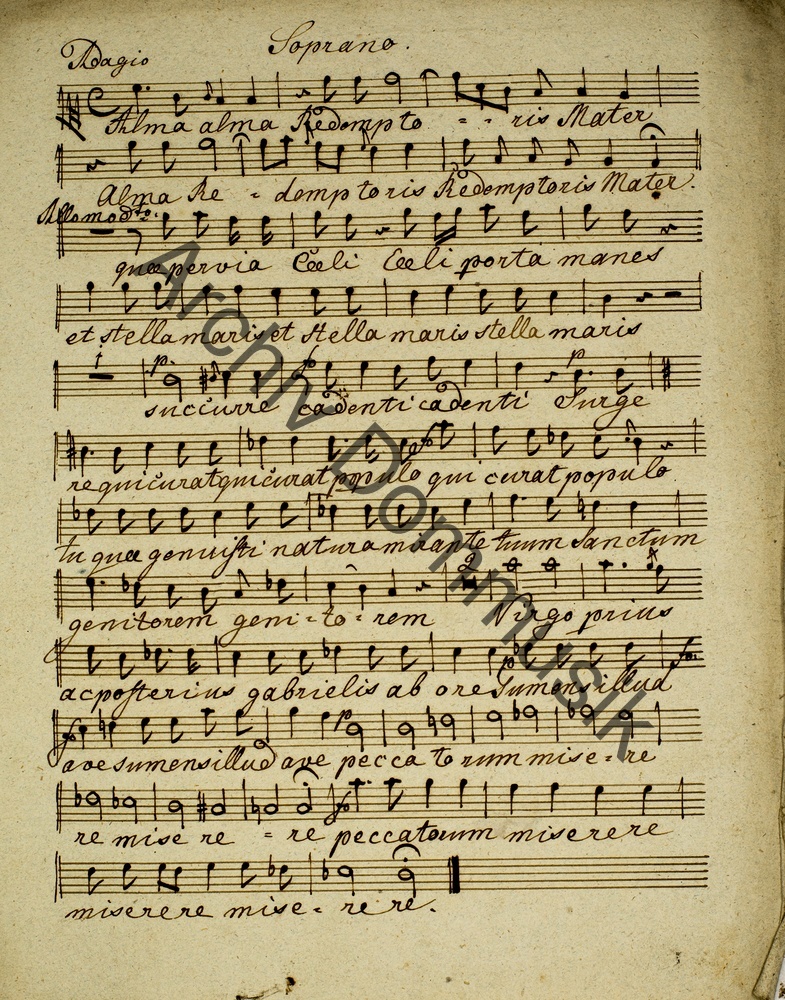 Soprano.
Adagio
Alma alma Redempto = = ris Mater
Alma Re = demptoris Redemptoris Mater.
Allo modto.
quæ pervia Cœli Cœli porta manes
et stella maris et stella maris stella maris
1
p f p
succurre cadenti cadenti Surge
f
re qui curat qui curat populo qui curat populo
tu quæ genuisti natura mirante tuum Sanctum
2
genitorem geni = to = rem Virgo prius
p fo:
ac posterius gabrielis ab ore Sumens illud
f p
ave sumens illud ave pecca to rum mise = re
f
re mise re = re peccatorum miserere
miserere mise = re re.
Archiv Dommusik